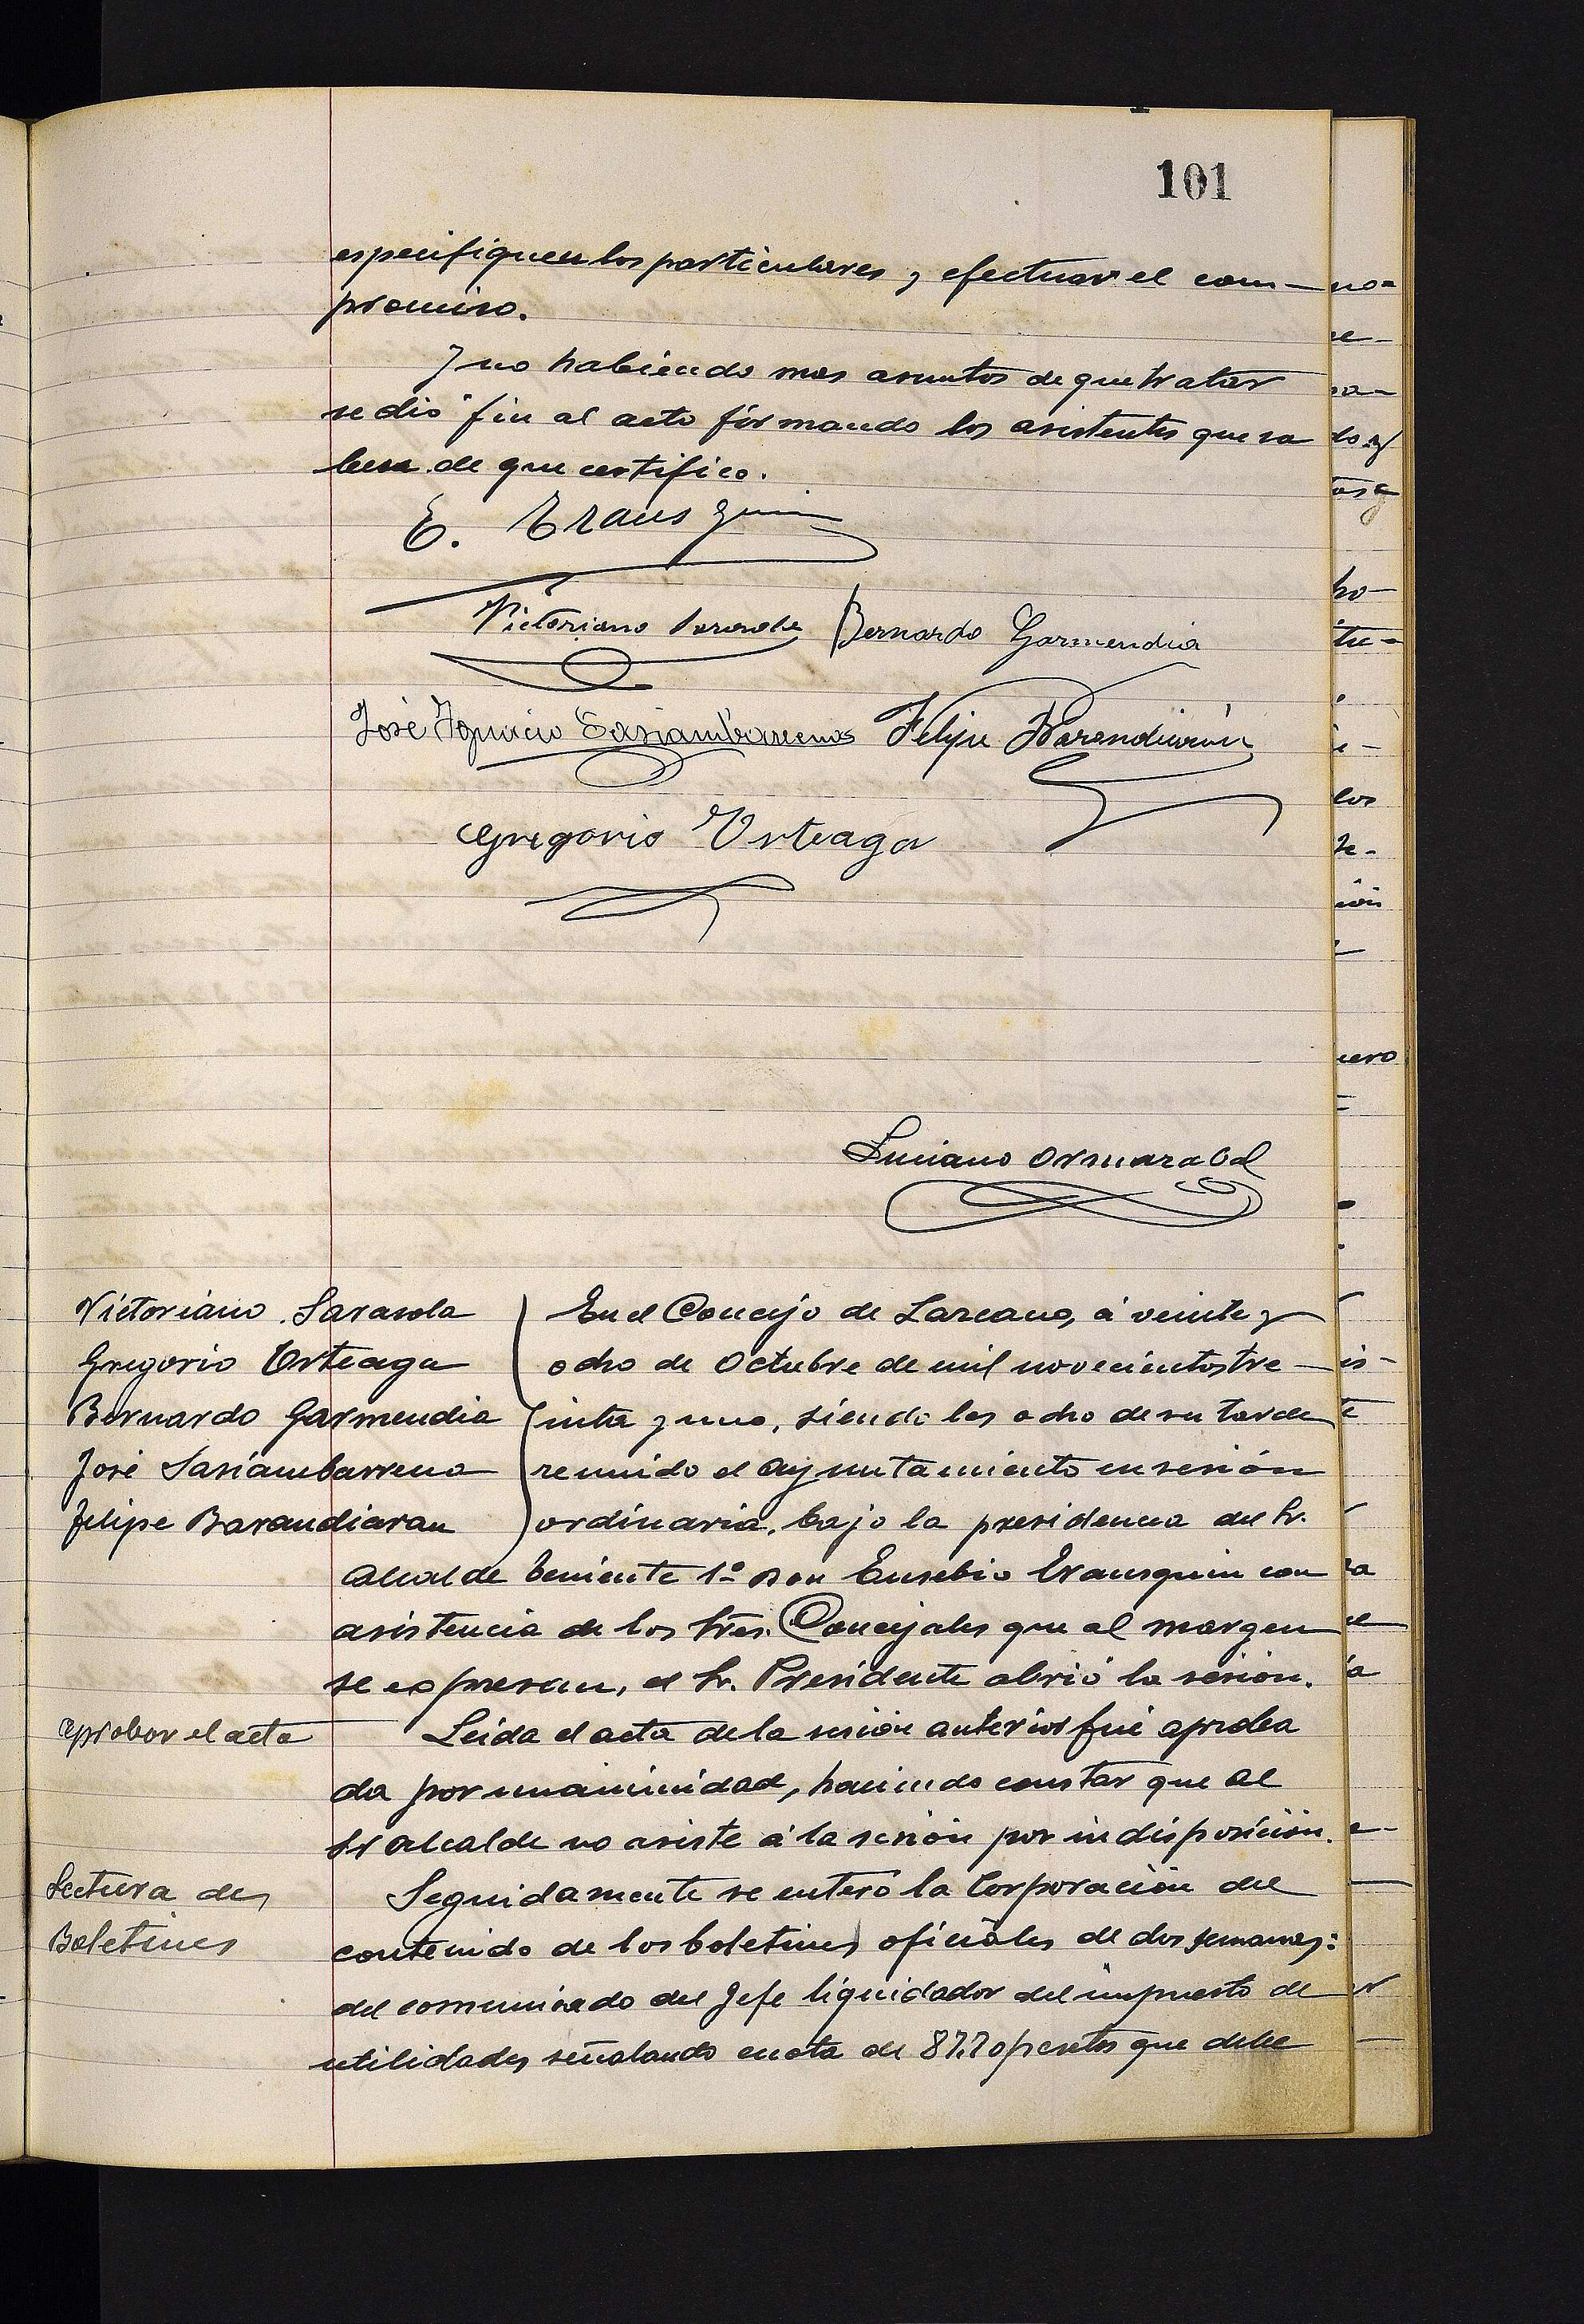 101
especifiquen los particulares y efectuar el com-
promiso.
Y no habiendo mas asuntos de que tratar
se dió fin al acto firmando los asistentes que sa
ben de que certifico.
E. Trausquin
Victoriano Sarasola Bernardo Garmendia
José Ignacio Sasiambarrena Felipe Barandiarán
Gregorio Urteaga
Luciano Ormazabal
Victoriano Sarasola
Gregorio Urteaga
Bernardo Garmendia
José Sasiambarrena
Felipe Barandiaran
En el Concejo de Lazcano, á veinte y
ocho de Octubre de mil novecientos tre-
inta y uno, siendo las ocho de su tarde
reunido el Ayuntamiento en sesión
ordinaria, bajo la presidencia del Sr.
Alcalde teniente 1º Don Eusebio Irausquin con
asistencia de los Sres. Concejales que al margen
se expresan, el Sr. Presidente abrió la sesión.
Aprobar el acta
Leida el acta de la sesión anterior fué aproba
da por unanimidad, haciendo constar que el
Sr Alcalde no asiste á la sesión por indisposición.
Lectura de
Boletines
Seguidamente se enteró la Corporación del
contenido de los boletines oficiales de dos semanas:
del comunicado del Jefe liquidador del impuesto de
utilidades señalando cuota de 87.70 pesetas que debe